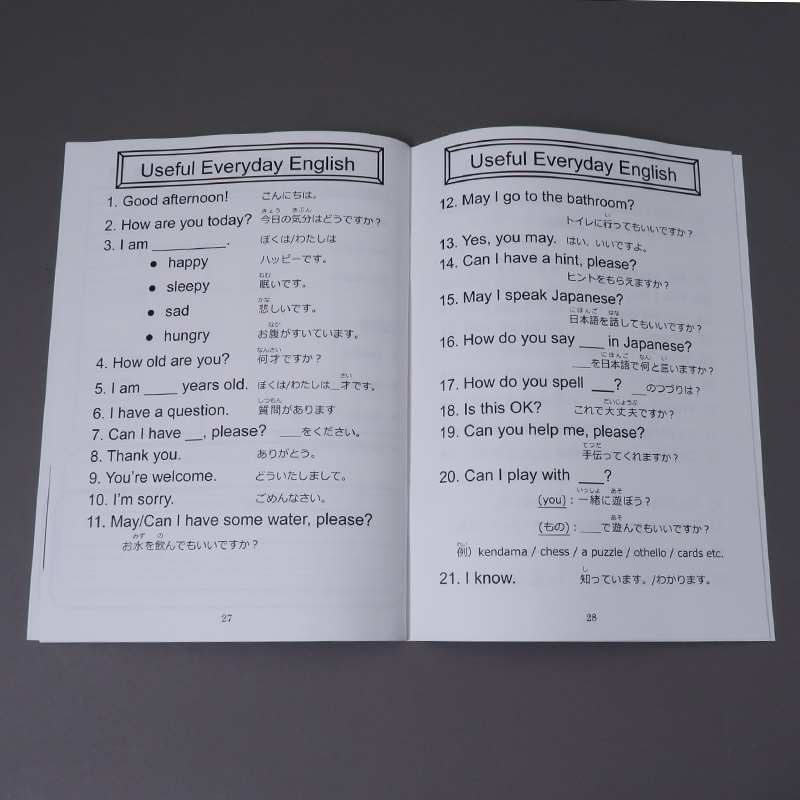 Useful Everyday English
1. Good afternoon! こんにちは。
きょう きぶん
2. How are you today? 今日の気分はどうですか?
3. I am ________. ぼくは/わたしは
• happy ハッピーです。
ねむ
• sleepy 眠いです。
かな
• sad 悲しいです。
なか
• hungry お腹がすいています。
なんさい
4. How old are you? 何才ですか?
さい
5. I am ____ years old. ぼくは/わたしは__才です。
しつもん
6. I have a question. 質問があります
7. Can I have __, please? ___をください。
8. Thank you. ありがとう。
9. You're welcome. どういたしまして。
10. I'm sorry. ごめんなさい。
11. May/Can I have some water, please?
みず の
お水を飲んでもいいですか?
27
Useful Everyday English
12. May I go to the bathroom?
い
トイレに行ってもいいですか?
13. Yes, you may. はい、いいですよ。
14. Can I have a hint, please?
ヒントをもらえますか?
15. May I speak Japanese?
にほんご はな
日本語を話してもいいですか?
16. How do you say ___ in Japanese?
にほんご なん い
___を日本語で何と言いますか?
17. How do you spell ___? __のつづりは?
だいじょうぶ
18. Is this OK? これで大丈夫ですか?
19. Can you help me, please?
てつだ
手伝ってくれますか?
20. Can I play with ___?
いっしょ あそ
(you):一緒に遊ぼう?
あそ
(もの):___で遊んでもいいですか?
れい
例)kendama / chess / a puzzle / othello / cards etc.
し
21. I know. 知っています。/わかります。
28